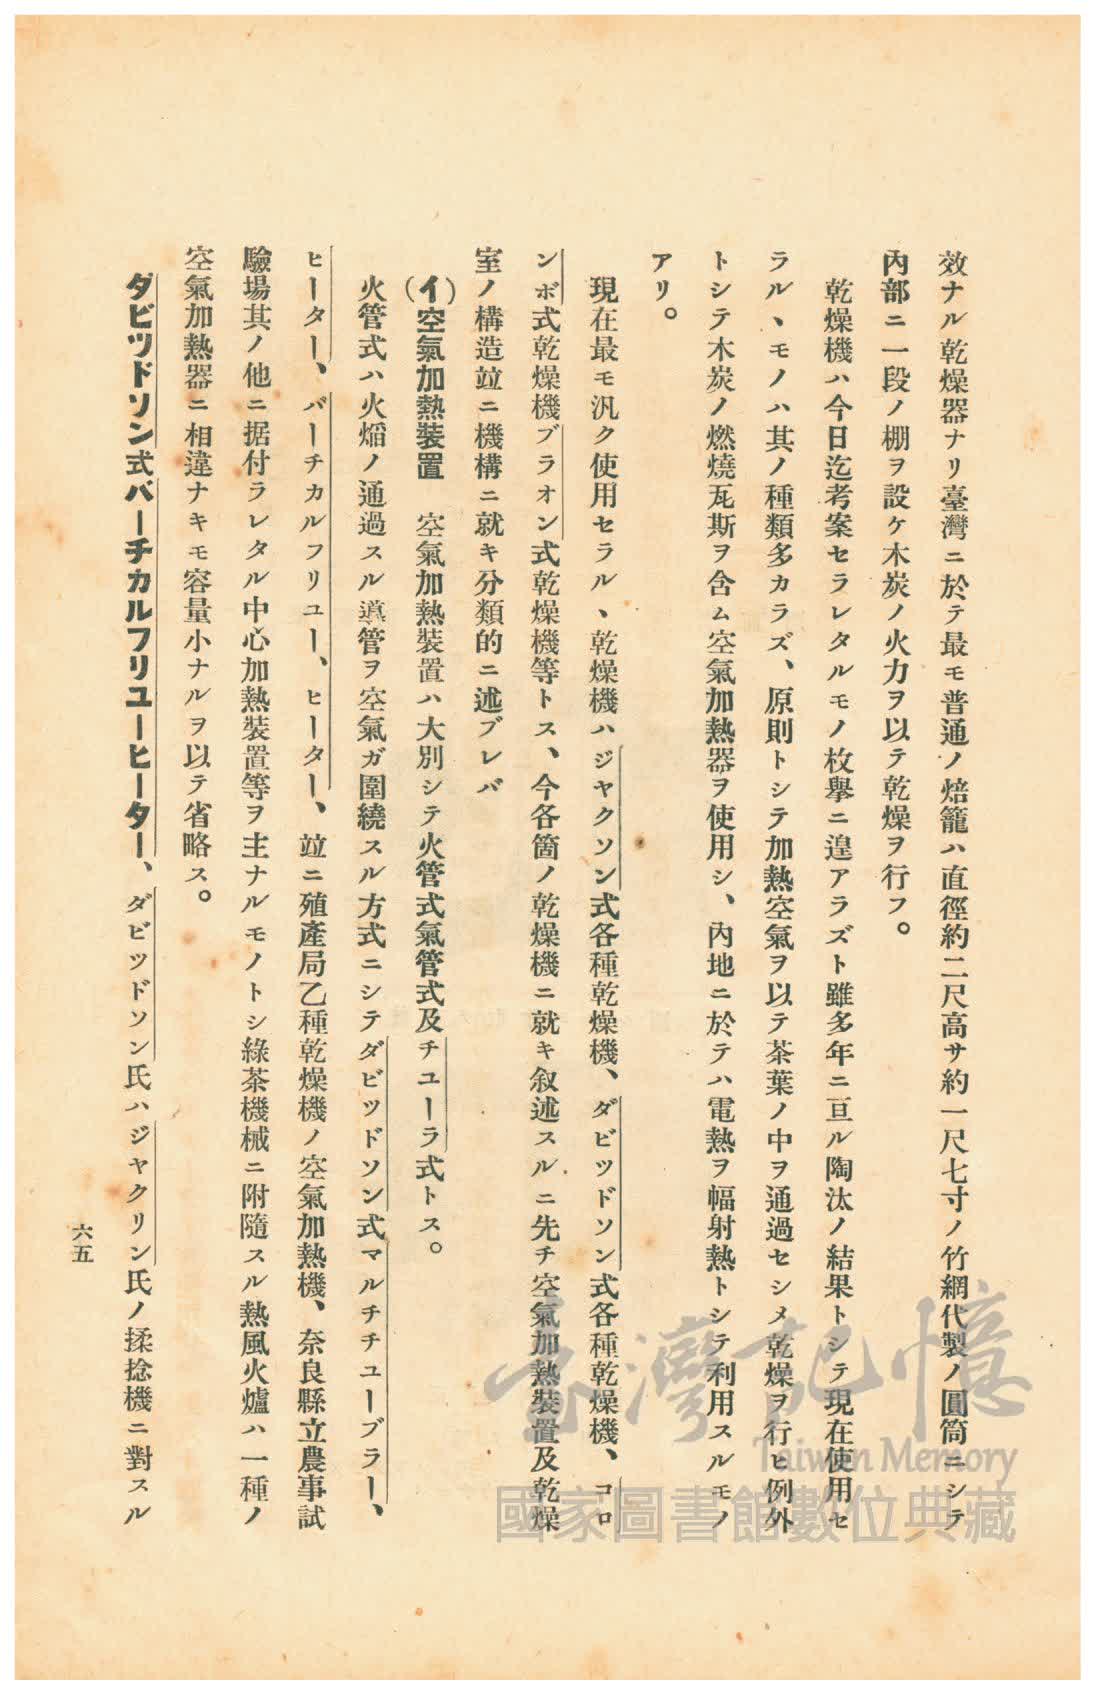 效ナル乾燥器ナリ臺灣ニ於テ最モ普通ノ焙籠ハ直徑約二尺高サ約一尺七寸ノ竹網代製ノ圓筒ニシテ
內部ニ一段ノ棚ヲ設ケ木炭ノ火力ヲ以テ乾燥ヲ行フ。
乾燥機ハ今日迄考案セラレタルモノ枚擧ニ遑アラズト雖多年ニ亘ル陶汰ノ結果トシテ現在使用セ
ラルヽモノハ其ノ種類多カラズ、原則トシテ加熱空氣ヲ以テ茶葉ノ中ヲ通過セシメ乾燥ヲ行ヒ例外
トシテ木炭ノ燃燒瓦斯ヲ含ム空氣加熱器ヲ使用シ、內地ニ於テハ電熱ヲ幅射熱トシテ利用スルモノ
アリ。
現在最モ汎ク使用セラルヽ乾燥機ハジヤクソン式各種乾燥機、ダビツドソン式各種乾燥機、コロ
ンボ式乾燥機ブラオン式乾燥機等トス、今各箇ノ乾燥機ニ就キ叙述スルニ先チ空氣加熱裝置及乾燥
室ノ構造竝ニ機構ニ就キ分類的ニ述ブレバ
(イ)空氣加熱裝置　空氣加熱裝置ハ大別シテ火管式氣管式及チユーラ式トス。
火管式ハ火焰ノ通過スル導管ヲ空氣ガ圍繞スル方式ニシテダビツドソン式マルチチユーブラー、
ヒーター、バーチカルフリユー、ヒーター、竝ニ殖產局乙種乾燥機ノ空氣加熱機、奈良縣立農事試
驗場其ノ他ニ据付ラレタル中心加熱裝置等ヲ主ナルモノトシ綠茶機械ニ附隨スル熱風火爐ハ一種ノ
空氣加熱器ニ相違ナキモ容量小ナルヲ以テ省略ス。
ダビツドソン式バーチカルフリユーヒーター、ダビツドソン氏ハジヤクリン氏ノ揉捻機ニ對スル
六五
臺灣記憶
Taiwan Memory
國家圖書館數位典藏